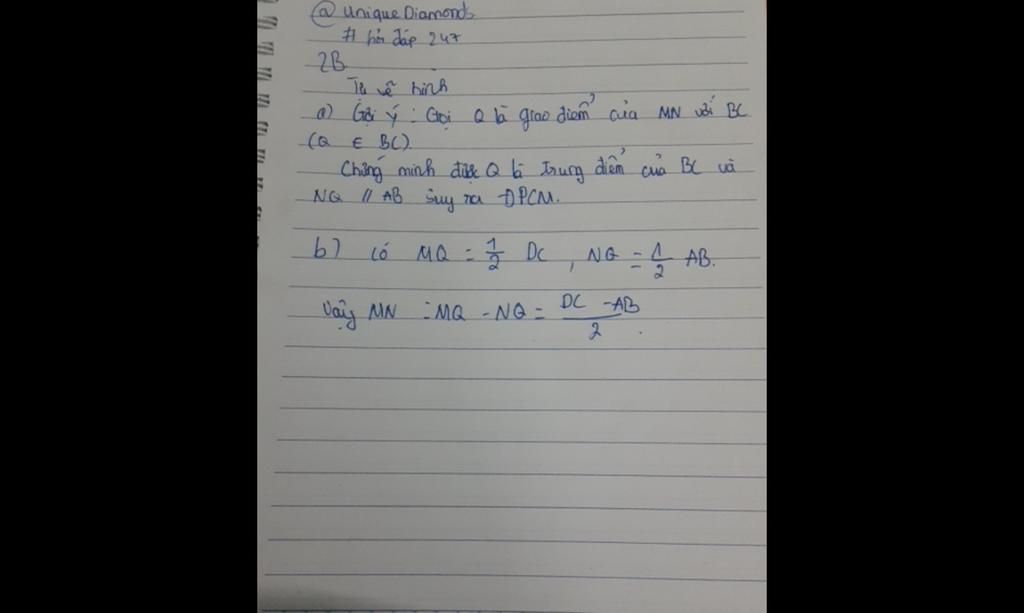 @ UniqueDiamonds
# hỏi đáp 247
2B
Tự vẽ hình
a) Gợi ý : Gọi Q là giao điểm của MN với BC
(Q ∈ BC).
Chứng minh được Q là trung điểm của BC và
NQ // AB suy ra ĐPCM.
b) Có MQ = 1/2 DC , NQ = 1/2 AB.
Vậy MN = MQ - NQ = (DC - AB)/2.